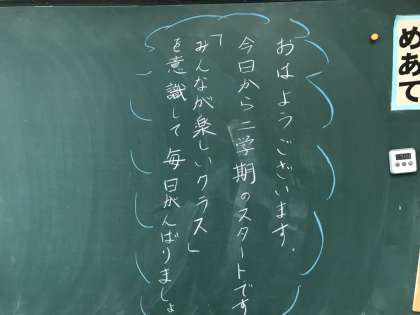 おはようございます。
今日から二学期のスタートです
「みんなが楽しいクラス」
を意識して毎日がんばりましょ
めあて